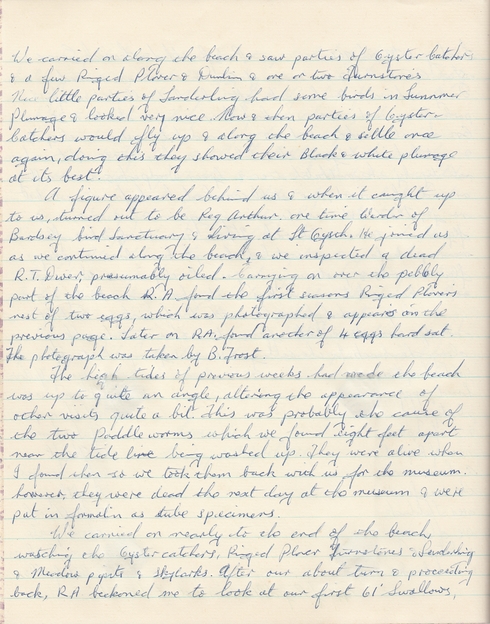 We carried on along the beach & saw parties of Oyster Catchers
& a few Ringed Plover & Dunlin & one or two Turnstones
little parties of Sanderling had some birds in Summer
Plumage & looked very nice. Now & then parties of Oyster-
Catchers would fly up & along the beach & settle once
again, doing this they showed their Black & white plumage
at its best.
A figure appeared behind us & when it caught up
to us, turned out to be Reg Arthur. one time Warden of
Bardsey bird Sanctuary & living at. He joined us
as we continued along the beach, & we inspected a dead
R.T. Diver, presumably oiled. Carrying on over the pebbly
part of the beach R.A. found the first seasons Ringed Plovers
nest of two eggs, which was photographed & appears on the
previous page. Later on RA. found another of 4 eggs hard sat.
The photograph was taken by B. Frost.
The high tides of previous weeks had made the beach
was up to quite an angle, altering the appearance of
other visits quite a bit. This was probably the cause of
the two Paddleworms which we found eight feet apart
near the tide line being washed up. They were alive when
I found them so we took them back with us for the museum.
however, they were dead the next day at the museum & were
put in formalin as tube specimens.
We carried on nearly to the end of the beach,
watching the Oystercatchers, Ringed Plover Turnstones & Sanderling
& Meadow pipits & Skylarks. After our about turn & proceeding
back, RA beckoned me to look at our first 61 Swallows,